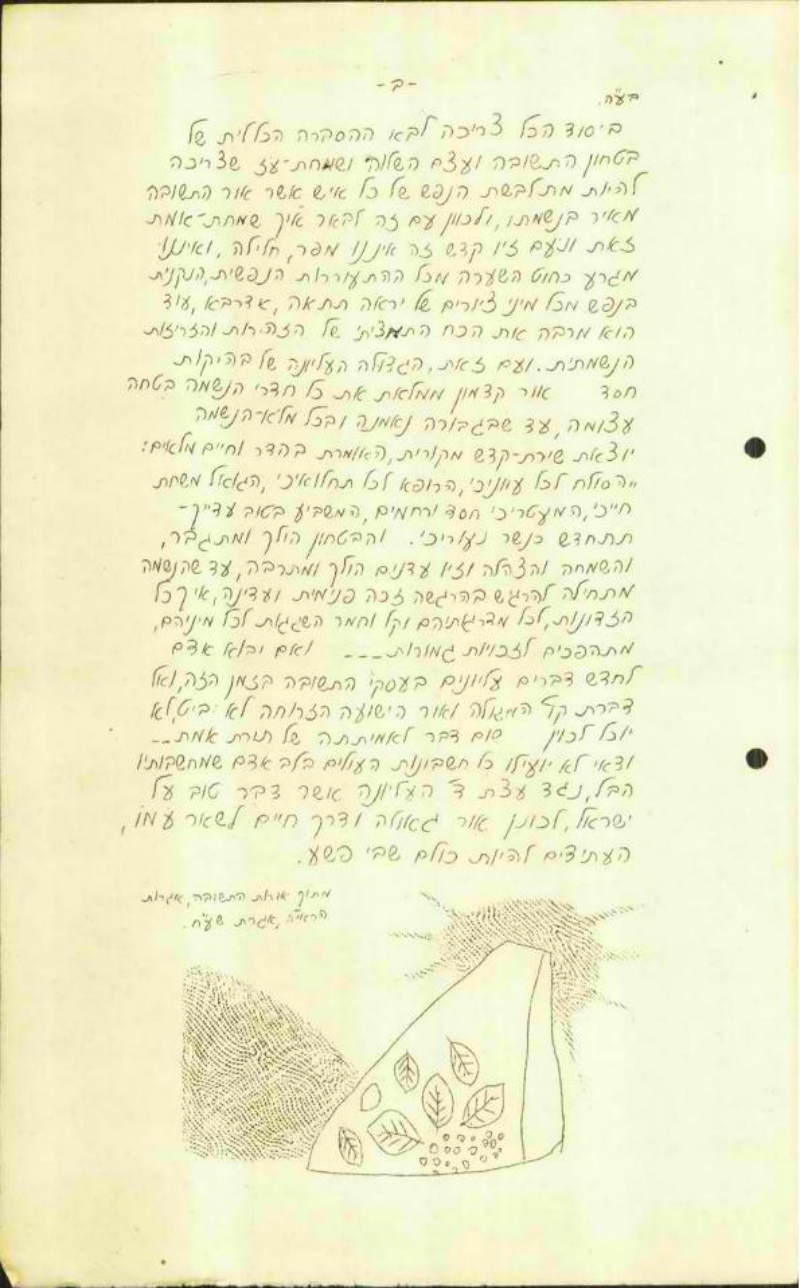 -ב-
בע"ה.
ביסוד הכל צריכה לבא ההסברה הכללית של
בטחון התשובה ועצם השלוה ושמחת-עז שצריכה
להיות מתלבשת הנפש של כל איש אשר אור התשובה
מאיר בנשמתו, ולכוון עם זה לבאר איך שמחת-אמת
זאת ונעם זיו קדש זה איננו מפר, חלילה, ואיננו
מגרע כחוט השערה מכל ההתעוררות הנפשית, הנקנית
בנפש מכל מיני ציורים של יראה תתאה, אדרבא, עוד
הוא מרבה את הכח התמציתי של הזהירות והזריזות
הנשמתית. ועם זאת, הגדולה העליונה של בהיקות
חסד אור קדמון ממלאת את כל חדרי הנשמה בטחה
עצומה, עד שבגבורה נאמנה ובכל מלא-הנשמה
יוצאת שירת-קדש מקורית, האומרת בהדר וחיים מלאים:
"הסולח לכל עווניכי, הרופא לכל תחלואיכי, הגואל משחת
חייכי, המעטריכי חסד ורחמים, המשביע בטוב עדייך-
תתחדש כנשר נעוריכי. והבטחון הולך ומתגבר,
והשמחה והצהלה וזיו עדנים הולך ומתרבה, עד שהנשמה
מתחילה להרגש בהרגשה זכה פנימית ועדינה, איך כל
הזדונות, לכל מדרגותיהם וקל וחמר השגגות לכל מיניהם,
מתהפכים לזכויות גמורות--- ואם יבוא אדם
לחדש דברים עליונים בעסקי התשובה בזמן הזה, ואל
דברת קץ המגולה ואור הישועה הזרוחה לא יביט, לא
יוכל לכוין שום דבר לאמיתתה של תורת אמת--
ודאי לא יועילו כל חשבונות העולים בלב אדם שמחשבותיו
הבל, נגד עצת ד' העליונה אשר דבר טוב על
ישראל, לכונן אור גאולה ודרך חיים לשאר עמו,
העתידים להיות כולם שבי פשע.
מתוך אורות התשובה, אגרות
הראי"ה, אגרת שע"ח.